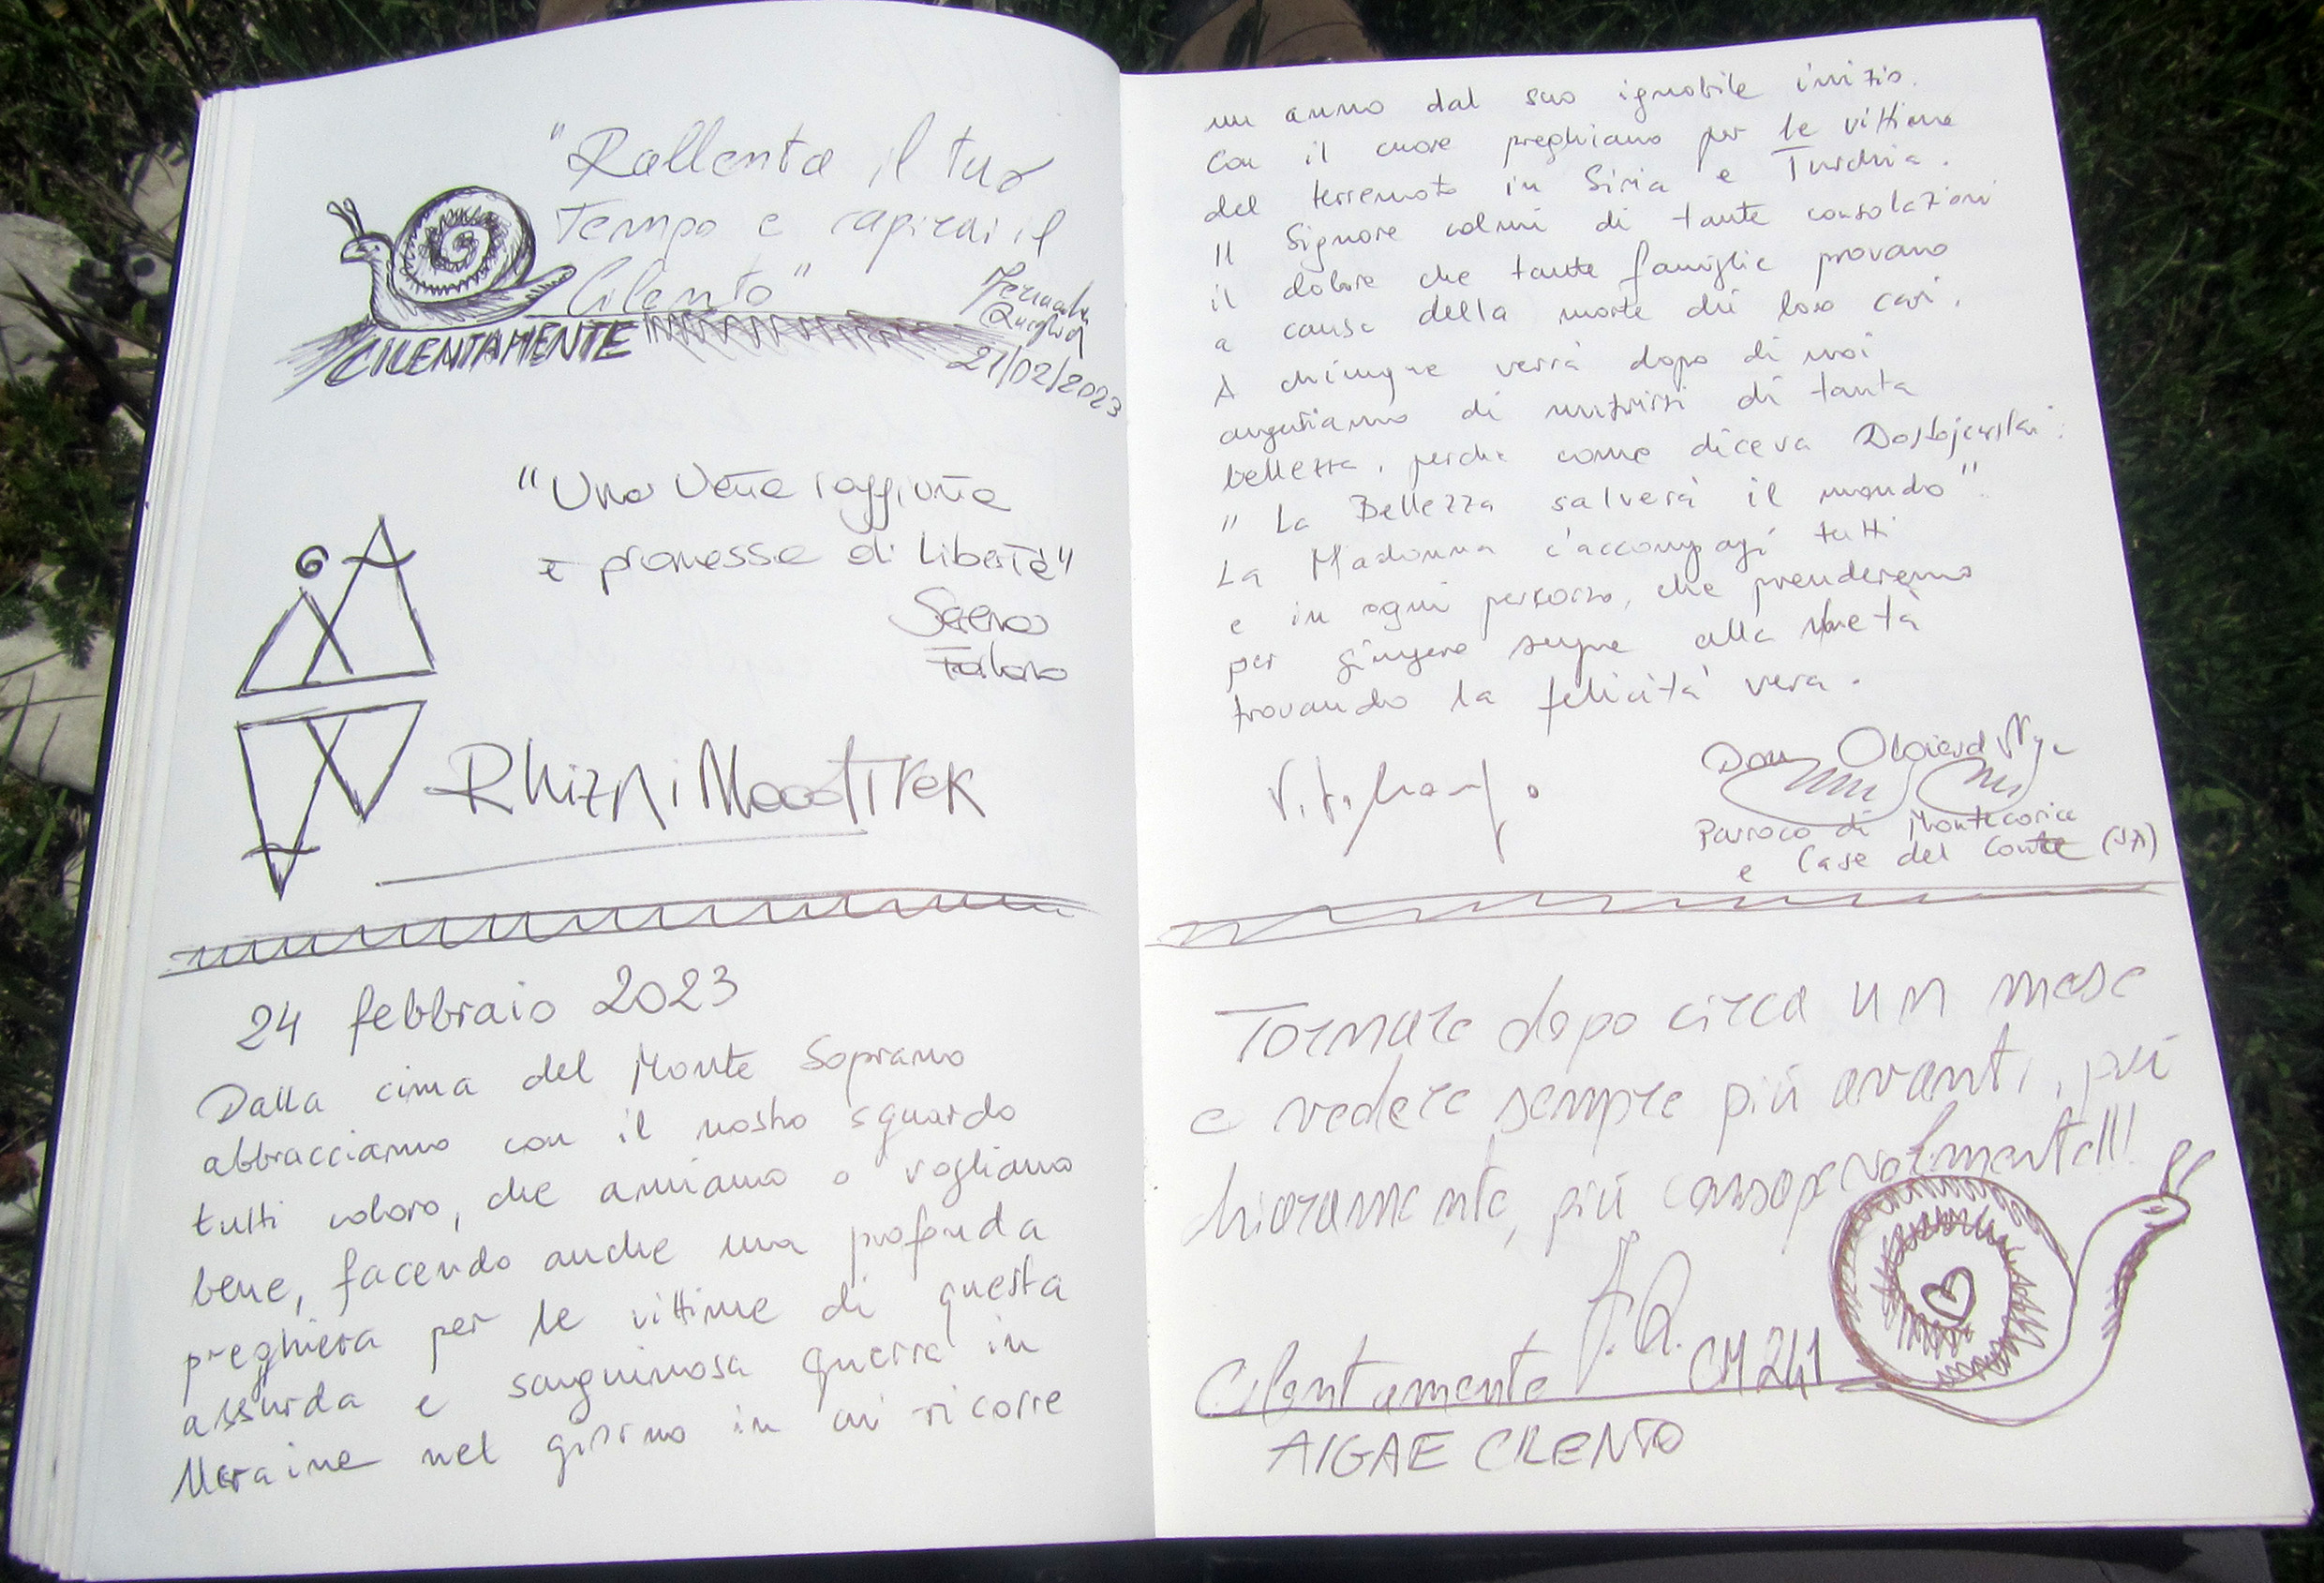 "Rallenta il tuo
Tempo e capirai il
Cilento"
CILENTAMENTE
21/02/2023
"Una vetta raggiunta
è promessa di libertà"
24 febbraio 2023
Dalla cima del Monte Soprano
abbracciamo con il nostro sguardo
tutti coloro, che amiamo o vogliamo
bene, facendo anche una profonda
preghiera per le vittime di questa
assurda e sanguinosa guerra in
Ucraine nel giorno in cui ricorre
un anno dal suo ignobile inizio.
Con il cuore preghiamo per le vittime
del terremoto in Siria e Turchia.
Il Signore colmi di tante consolazioni
il dolore che tante famiglie provano
a causa della morte dei loro cari.
A chiunque verrà dopo di noi
auguriamo di nutrirsi di tanta
bellezza, perché come diceva Dostojewski:
"La Bellezza salverà il mondo".
La Madonna c'accompagi tutti
e in ogni percorso, che prenderemo
per giungere sempre alla meta
trovando la felicità vera.
Don
Parroco di Montecorice
e Case del Conte (SA)
Tornare dopo circa un mese
e vedere sempre più avanti, più
chiaramente, più consapevolmente!!!
F.Q.
Cilentamente CM241
AIGAE CILENTO